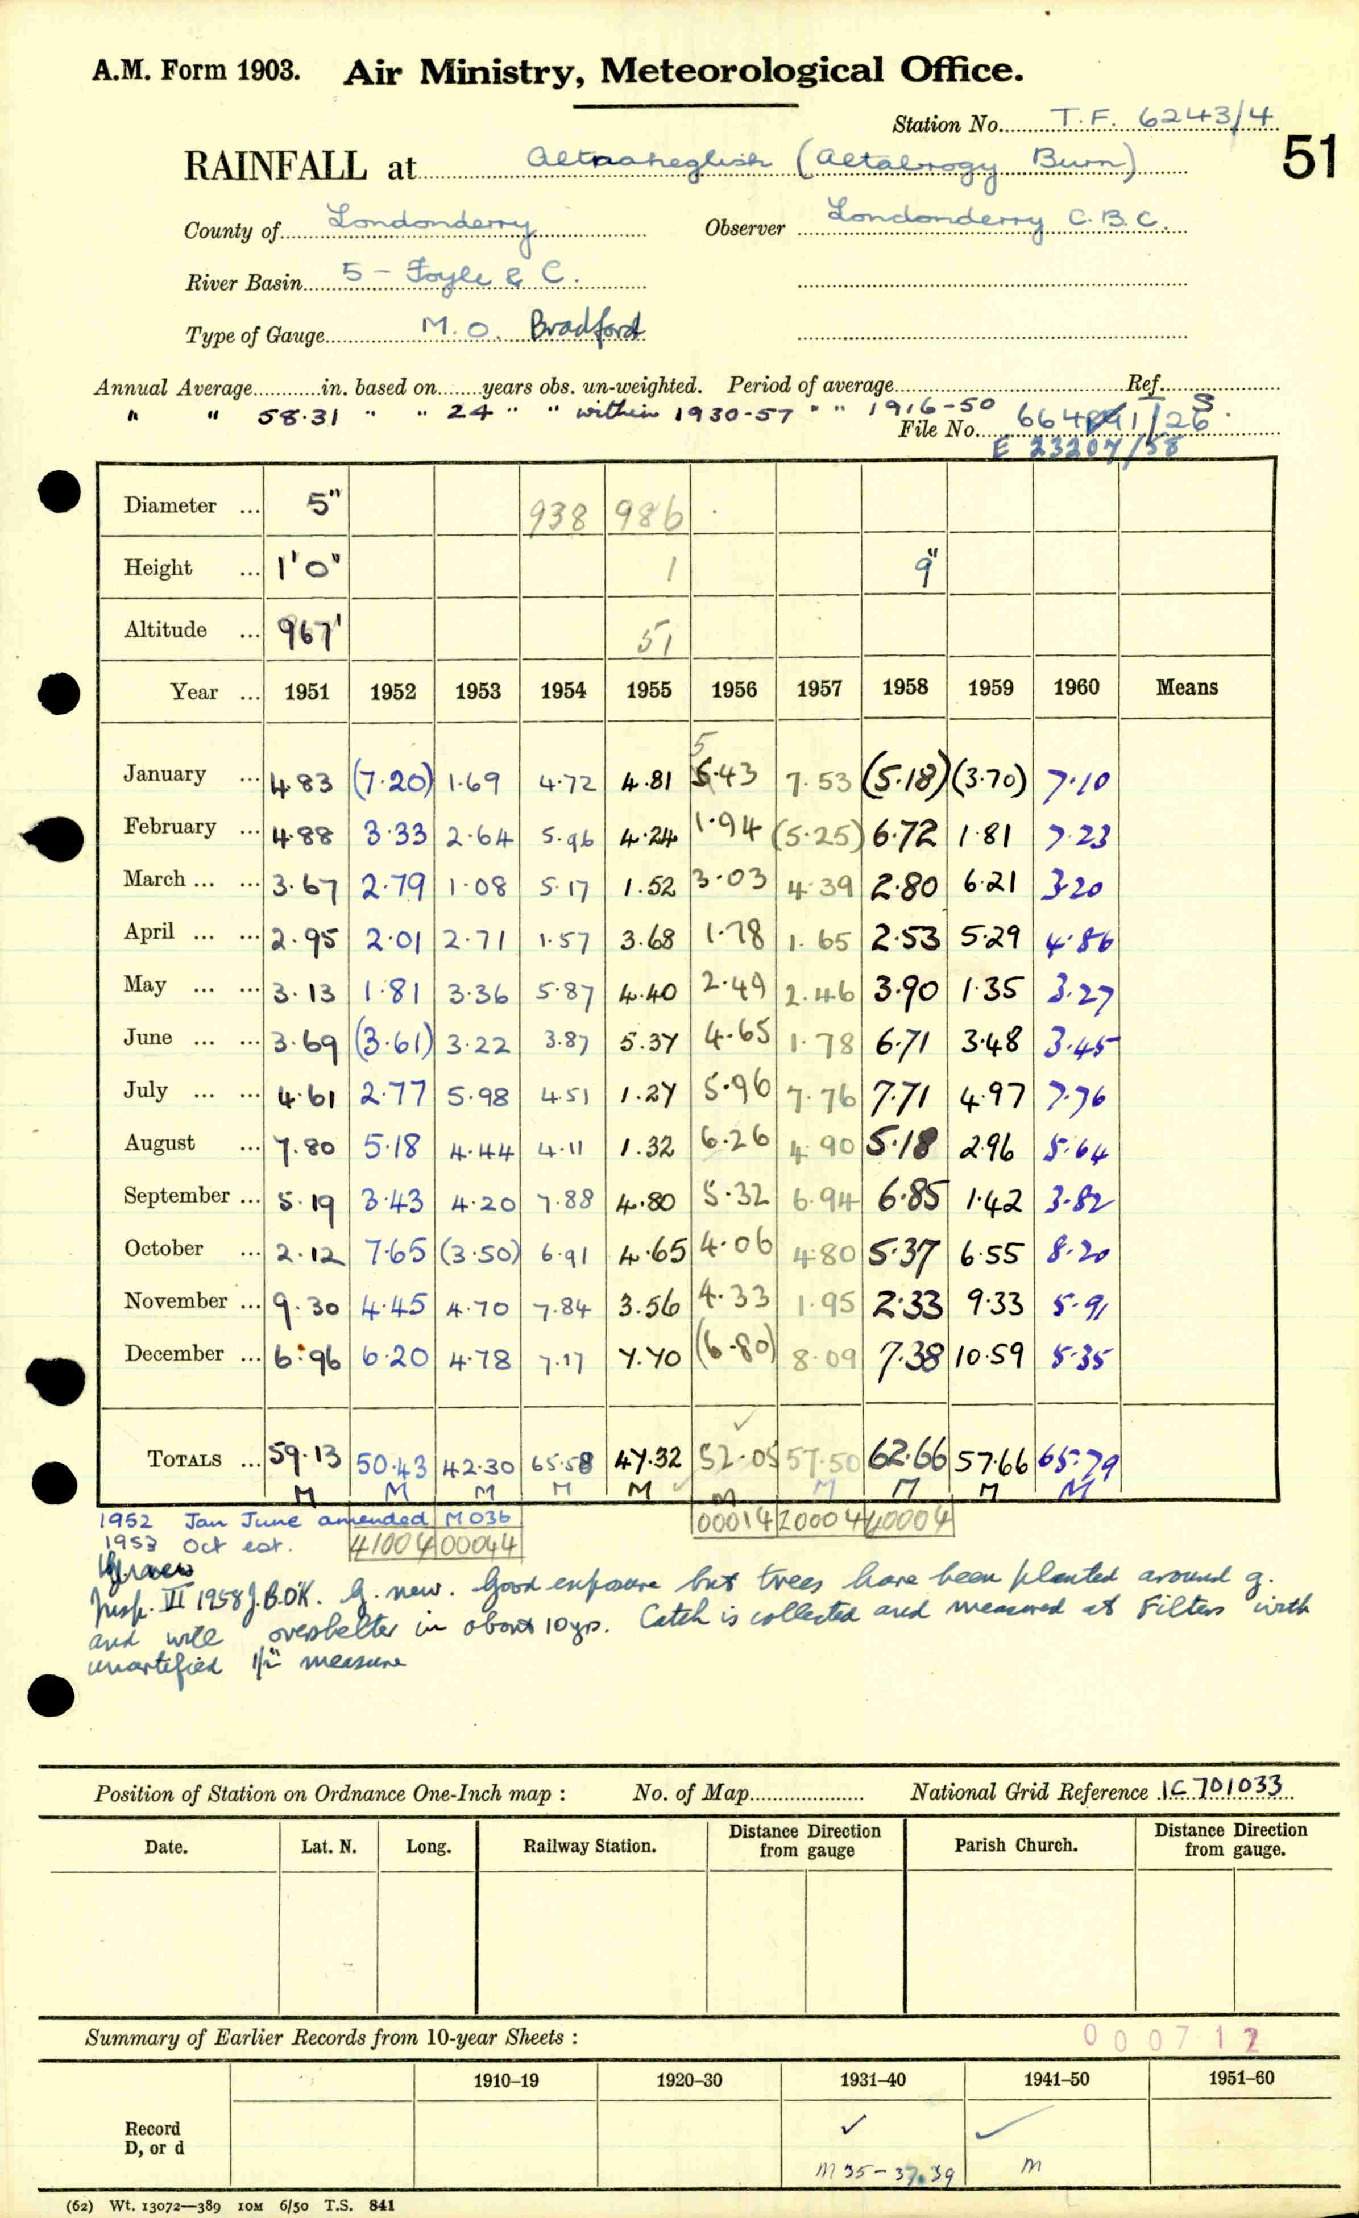 A.M. Form 1903. Air Ministry, Meteorological Office.
Station No. T.F. 6243/4
51
RAINFALL at Altnaheglish (Altabrogy Burn)
County of Londonderry Observer Londonderry C.B.C.
River Basin 5 - Foyle & C.
Type of Gauge M.O. Bradford
Annual Average in. based on years obs. un-weighted. Period of average Ref.
" " 58.31 " " 24 " " within 1930-57 " " 1916-50 S.
File No. 664 1/26
E 23207/58
Diameter ... 5" 938 986
Height ... 1'0" 1 9"
Altitude ... 967' 51
Year ... 1951 1952 1953 1954 1955 1956 1957 1958 1959 1960 Means
5
January ... 4.83 (7.20) 1.69 4.72 4.81 5.43 7.53 (5.18) (3.70) 7.10
February ... 4.88 3.33 2.64 5.96 4.24 1.94 (5.25) 6.72 1.81 7.23
March ... ... 3.67 2.79 1.08 5.17 1.52 3.03 4.39 2.80 6.21 3.20
April ... ... 2.95 2.01 2.71 1.57 3.68 1.78 1.65 2.53 5.29 4.86
May ... ... 3.13 1.81 3.36 5.87 4.40 2.49 2.46 3.90 1.35 3.27
June ... ... 3.69 (3.61) 3.22 3.87 5.37 4.65 1.78 6.71 3.48 3.45
July ... ... 4.61 2.77 5.98 4.51 1.27 5.96 7.76 7.71 4.97 7.76
August ... 7.80 5.18 4.44 4.11 1.32 6.26 4.90 5.18 2.96 5.64
September ... 5.19 3.43 4.20 7.88 4.80 5.32 6.94 6.85 1.42 3.82
October ... 2.12 7.65 (3.50) 6.91 4.65 4.06 4.80 5.37 6.55 8.20
November ... 9.30 4.45 4.70 7.84 3.56 4.33 1.95 2.33 9.33 5.91
December ... 6.96 6.20 4.78 7.17 7.70 (6.80) 8.09 7.38 10.59 5.35
TOTALS ... 59.13 50.43 42.30 65.58 47.32 52.05 57.50 62.66 57.66 65.79
M M M M M M M M M M
1952 Jan June amended M036 00014 20004 40004
1953 Oct est. 41004 00044
Insp. VI 1958 J.B.O'K. G. new. Good exposure but trees have been planted around g.
and will overshelter in about 10 yrs. Catch is collected and measured at Filters with
uncertified 1/2" measure
Position of Station on Ordnance One-Inch map : No. of Map National Grid Reference IC 701033
Date. Lat. N. Long. Railway Station. Distance from gauge Direction Parish Church. Distance from gauge. Direction
Summary of Earlier Records from 10-year Sheets : 000712
1910-19 1920-30 1931-40 1941-50 1951-60
Record D, or d ✓ ✓
M 35-37.39 M
(62) Wt. 13072-389 10M 6/50 T.S. 841